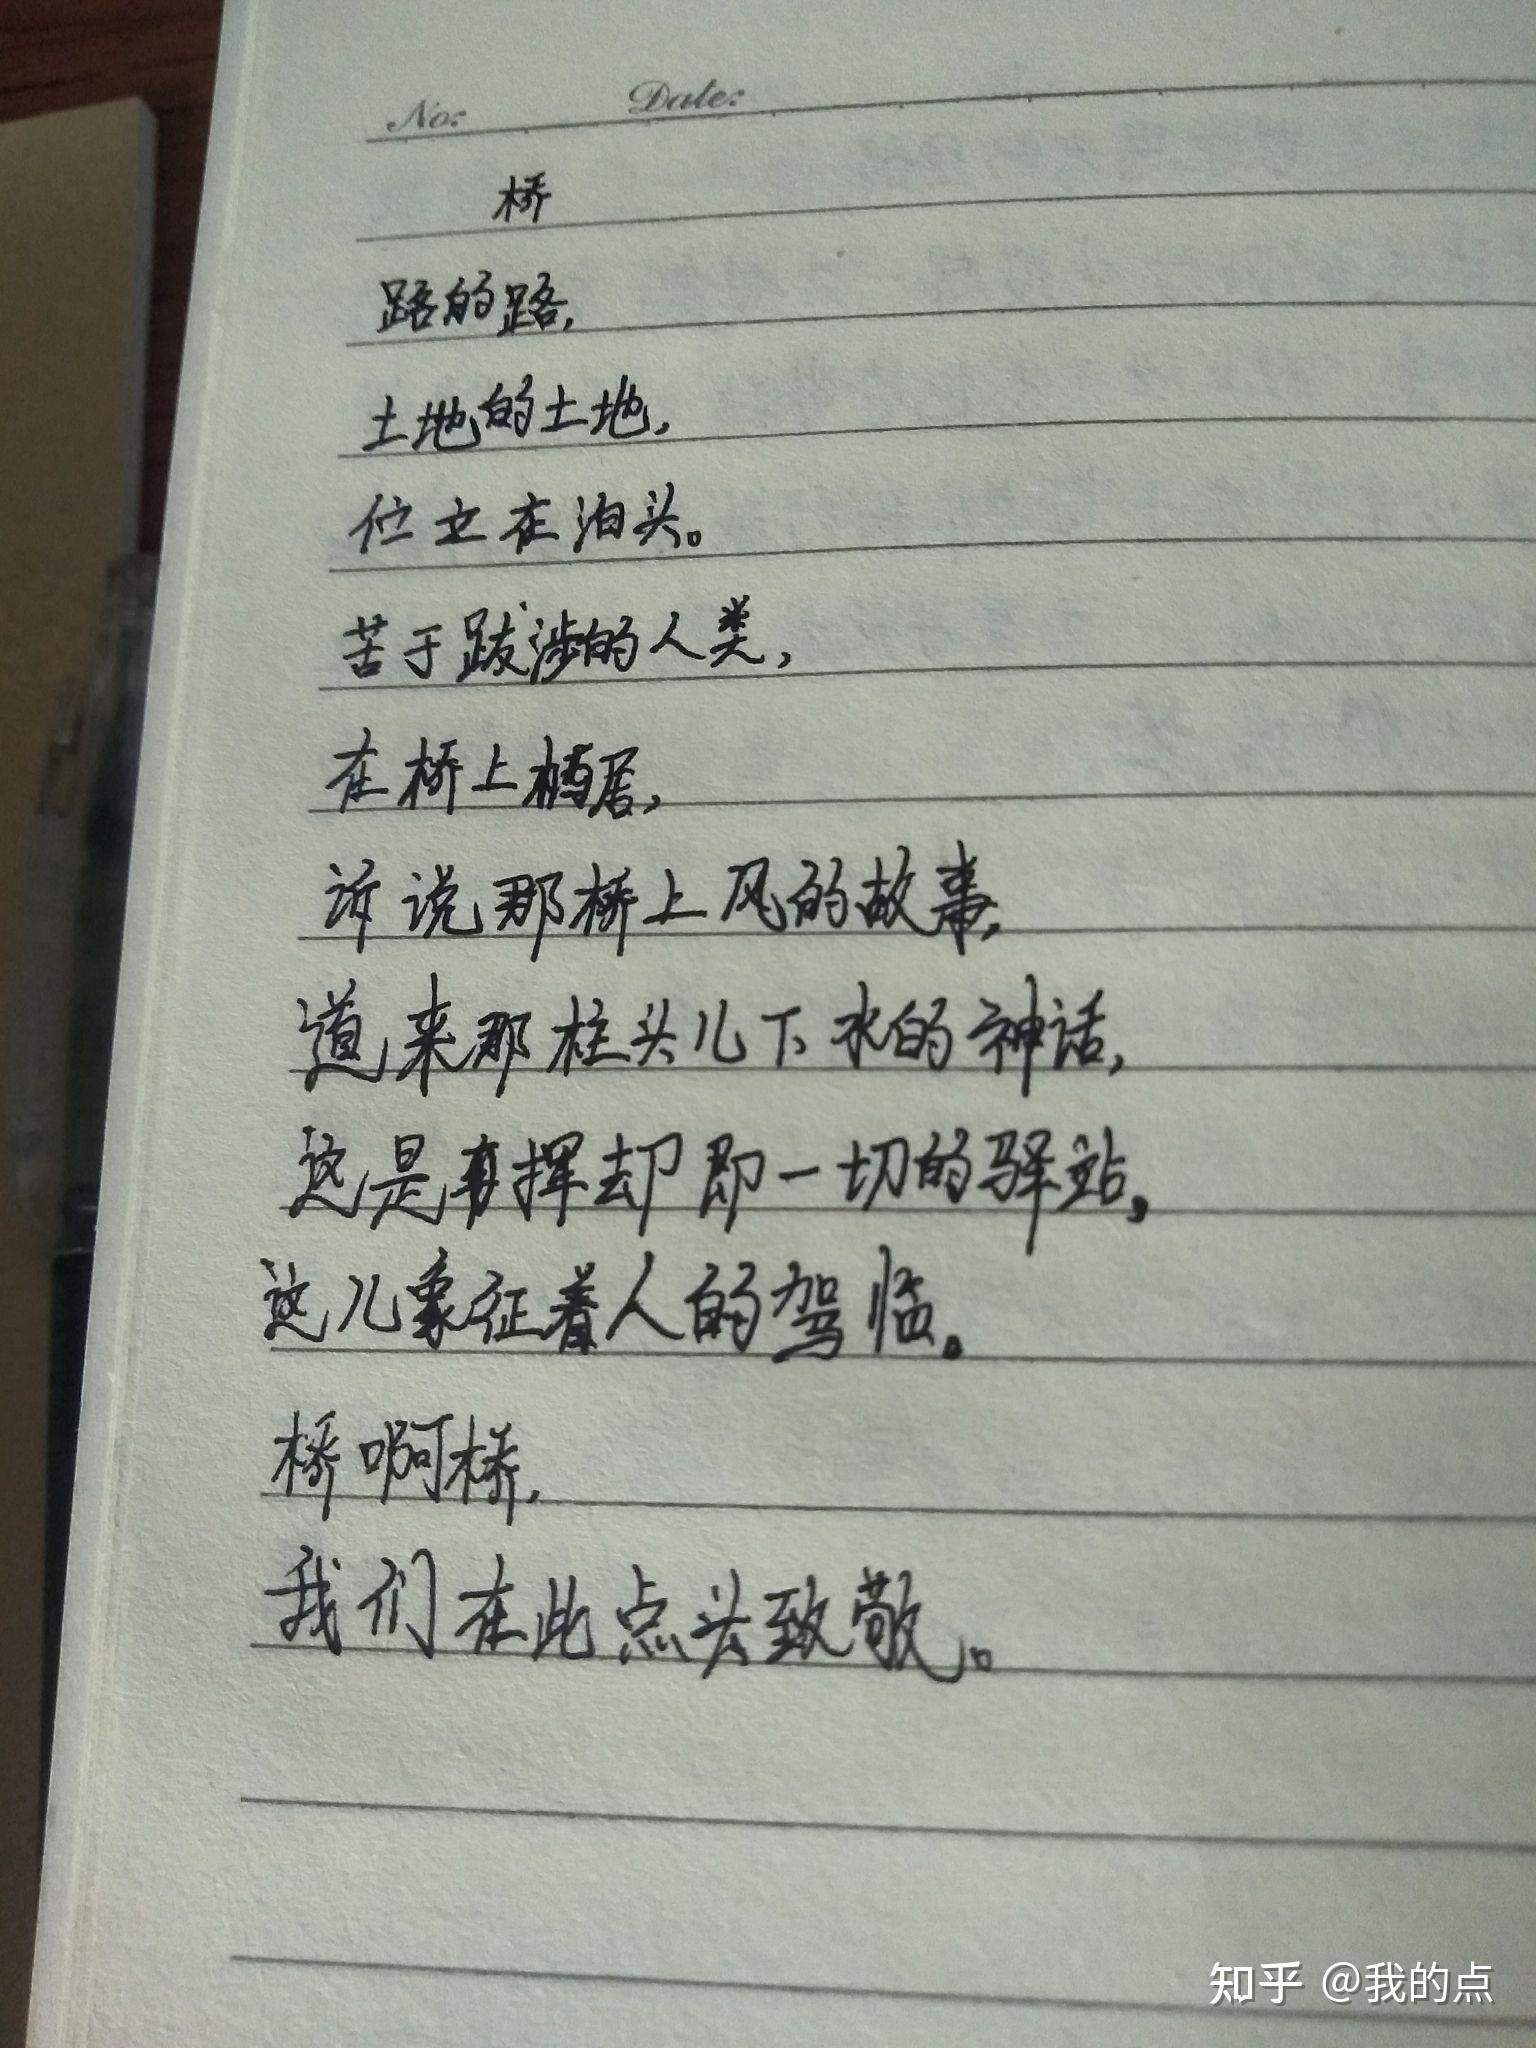 No: Date:
桥
路的路,
土地的土地,
伫立在泊头。
苦于跋涉的人类,
在桥上栖居,
诉说那桥上风的故事,
道来那柱头儿下水的神话,
这是 挥却即一切的驿站,
这儿象征着人的驾临。
桥啊桥,
我们在此点头致敬。
知乎 @我的点